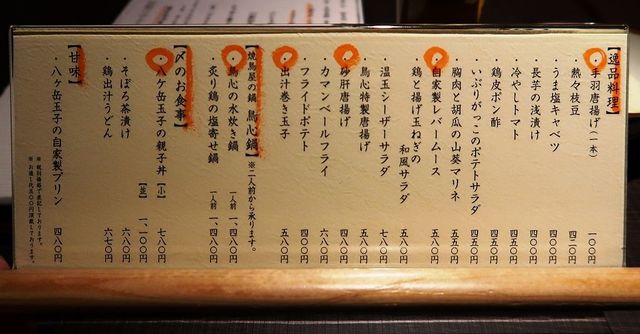 【逸品料理】
・手羽唐揚げ(一本) 一〇〇円
・熱々枝豆 四二〇円
・うま塩キャベツ 四〇〇円
・長芋の浅漬け 四五〇円
・冷やしトマト 四五〇円
・鶏皮ポン酢 四五〇円
・いぶりがっこのポテトサラダ 五五〇円
・胸肉と胡瓜の山葵マリネ 五五〇円
・自家製レバームース 五五〇円
・鶏と揚げ玉ねぎの
和風サラダ 五八〇円
・温玉シーザーサラダ 七八〇円
・鳥心特製唐揚げ 五八〇円
・砂肝唐揚げ 四八〇円
・カマンベールフライ 六八〇円
・フライドポテト 四〇〇円
・出汁巻き玉子 五八〇円
【焼鳥屋の鍋 鳥心鍋】※二人前から承ります。
・鳥心の水炊き鍋 一人前 一、四八〇円
・炙り鶏の塩寄せ鍋 一人前 一、四八〇円
【〆のお食事】
・八ヶ岳玉子の親子丼 【小】 七八〇円
【並】 一、一〇〇円
・そぼろ茶漬け 六八〇円
・鶏出汁うどん 六七〇円
【甘味】
・八ヶ岳玉子の自家製プリン 四八〇円
※税別価格で表記しております。
※お通し代五〇〇円頂戴しております。